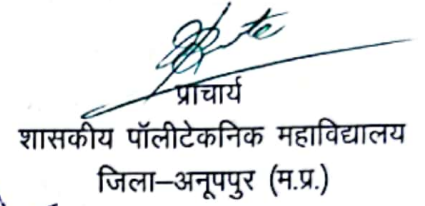 प्राचार्य
शासकीय पॉलीटेकनिक महाविद्यालय
जिला–अनूपपुर (म.प्र.)